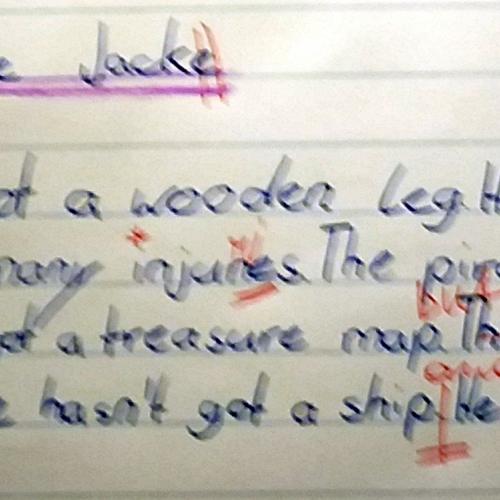 Jacke
ot a wooden leg. H
many injures. The pir
but
ot a treasure map. Th
and
e hasn't got a ship. He